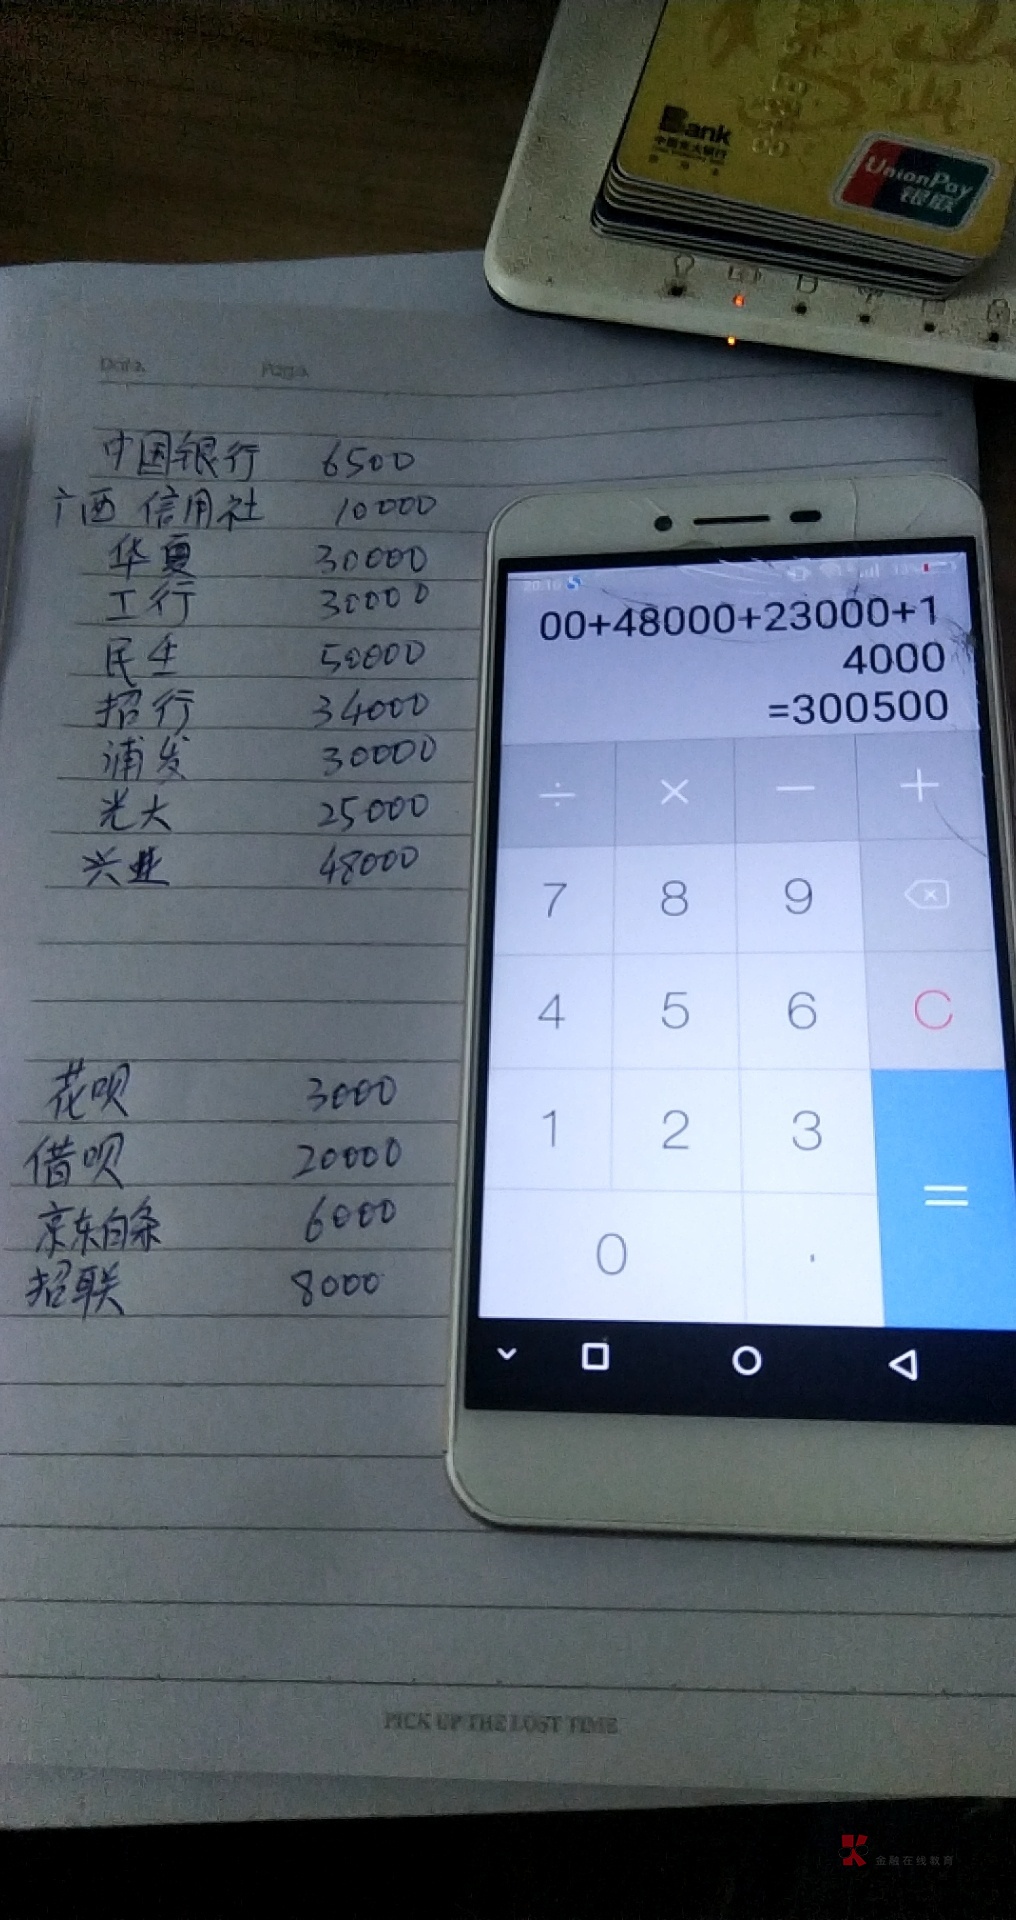 Bank
中国光大银行
UnionPay
银联
Date
Page
中国银行 6500
广西 信用社 10000
华夏 30000
工行 30000
民生 50000
招行 34000
浦发 30000
光大 25000
兴业 48000
花呗 3000
借呗 20000
京东白条 6000
招联 8000
20:10
00+48000+23000+1
4000
=300500
÷ × — +
7 8 9
4 5 6 C
1 2 3
0 . =
PICK UP THE LOST TIME
金融在线教育